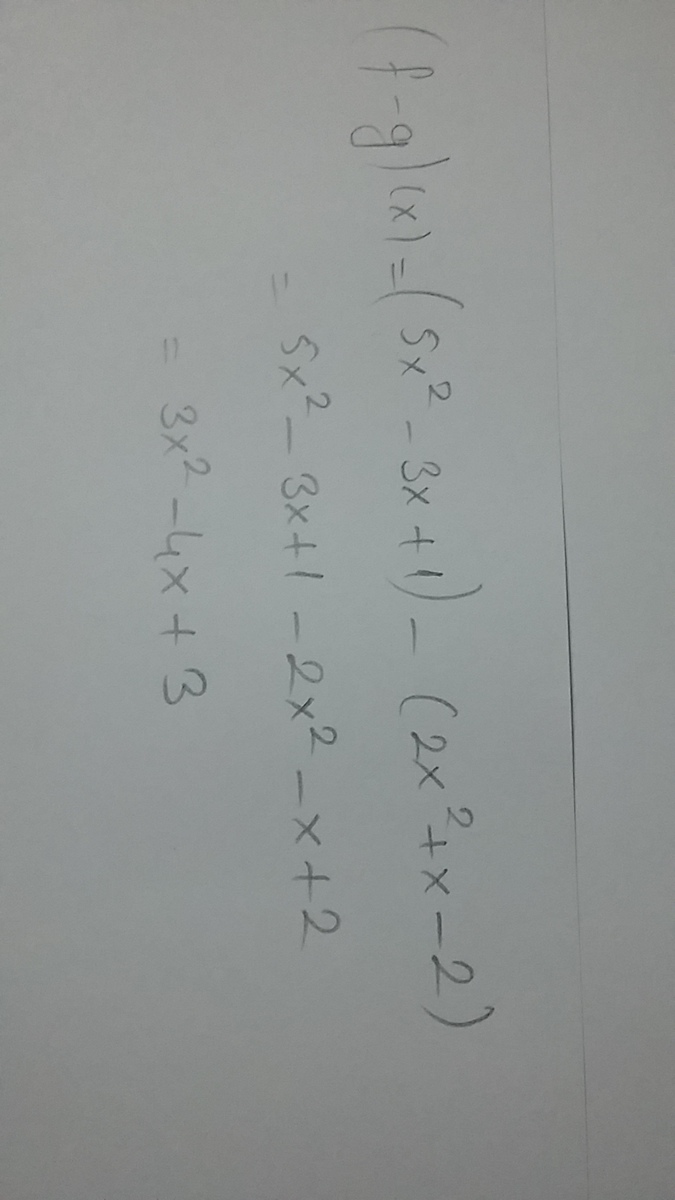 (f-g)(x)=(5x²-3x+1)-(2x²+x-2)
=5x²-3x+1-2x²-x+2
=3x²-4x+3